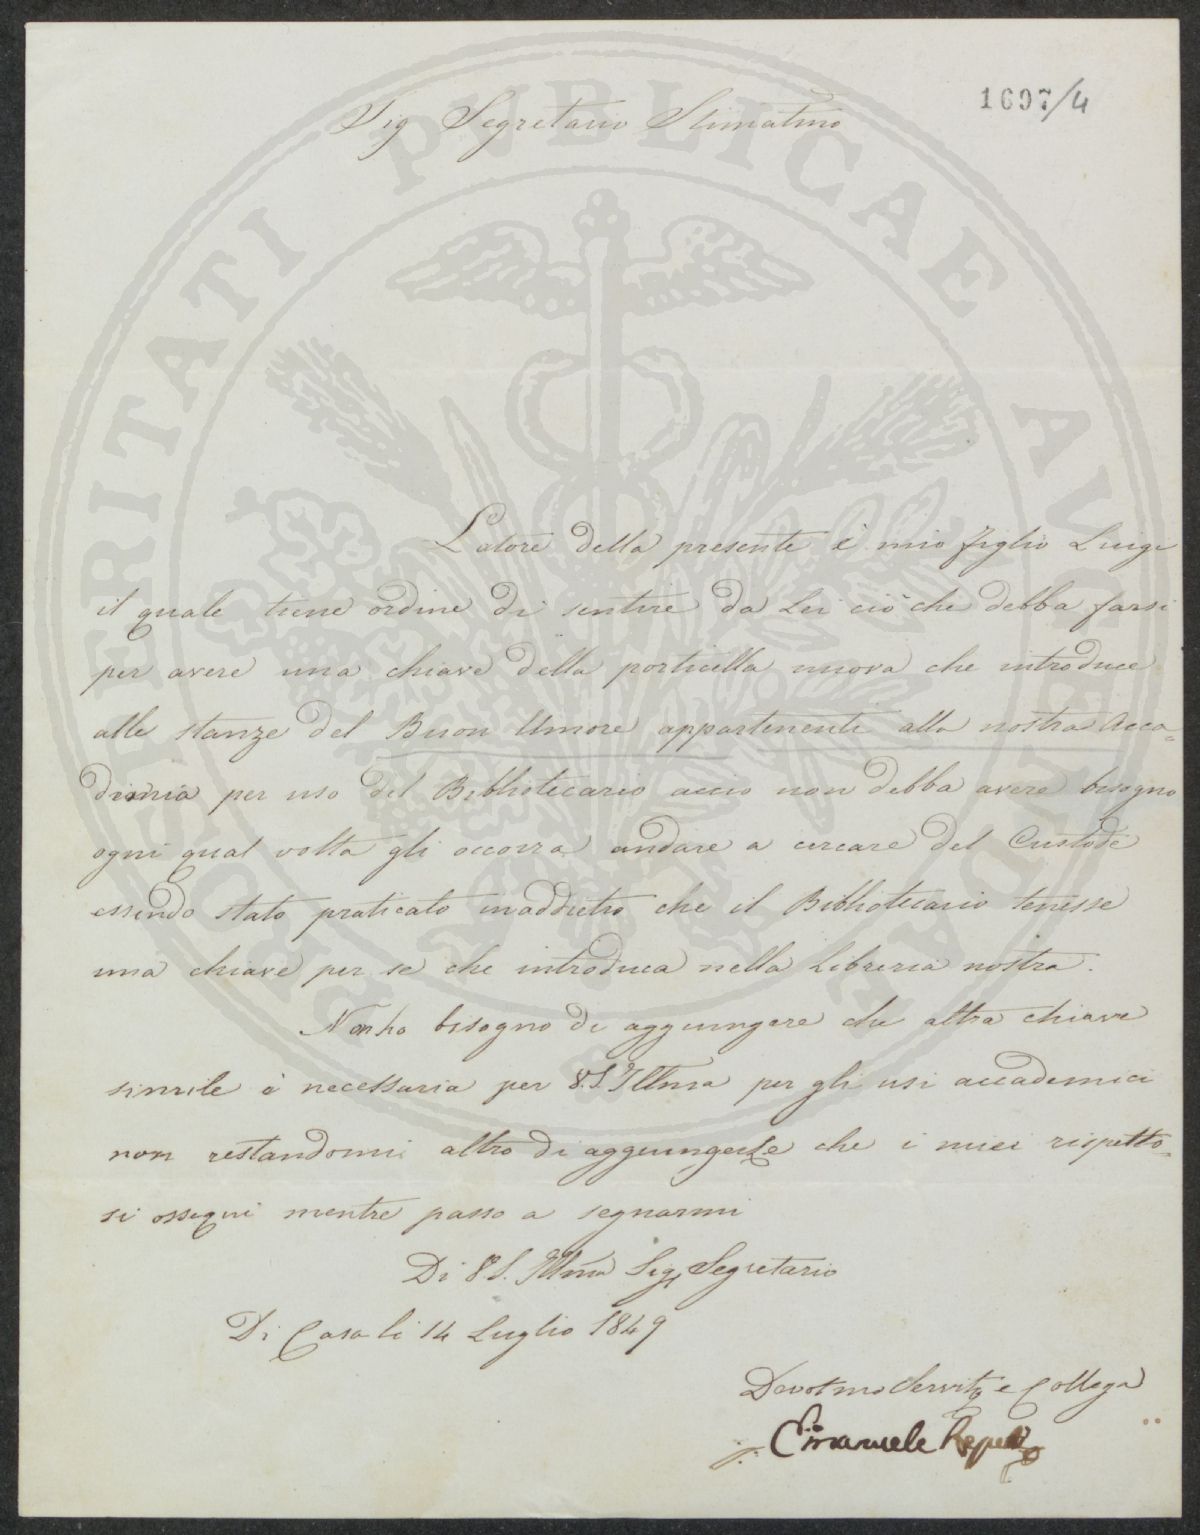 1697/4
Sig Segretario Stimatmo
Latore della presente è mio figlio Luigi
il quale tiene ordine di sentire da Lei ciò che debba farsi
per avere una chiave della porticella nuova che introduce
alle stanze del Buon Umore appartenenti alla nostra Acca-
dimia per uso del Bibliotecario acciò non debba avere bisogno
ogni qual volta gli occorra andare a cercare del Custode
essendo stato praticato inaddietro che il Bibliotecario tenesse
una chiave per se che introduca nella Libreria nostra.
Non ho bisogno di aggiungere che altra chiave
simile è necessaria per V.S. Illma per gli usi accademici
non restandomi altro di aggiungerle che i miei rispetto-
si ossequi mentre passo a segnarmi
Di V.S. Illma Sig Segretario
Di Casa li 14 Luglio 1849
Devotmo Servitre e Collega
Emanuele Repetti
PROSPERITATI PVBLICAE AVGENDAE